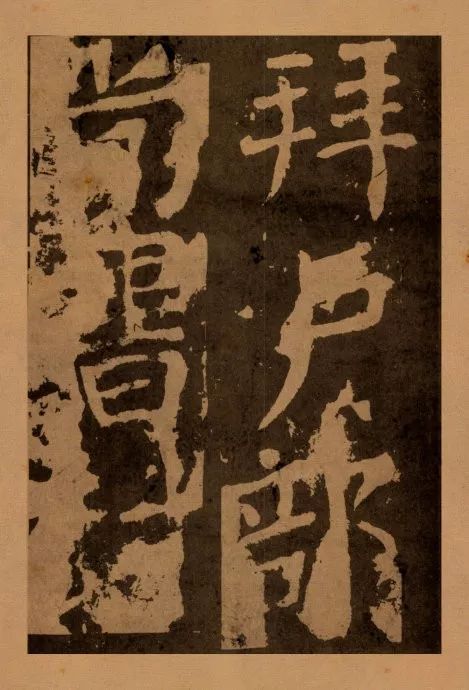 拜戶部
尚書